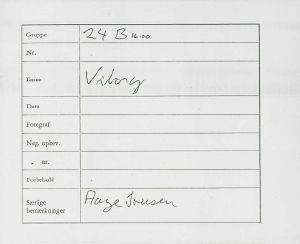 Gruppe 24 B 16.00
Nr.
Emne Viborg
Dato
Fotograf
Neg. opbev.
„ nr.
Forbehold
Særlige Aage Jensen
bemærkninger